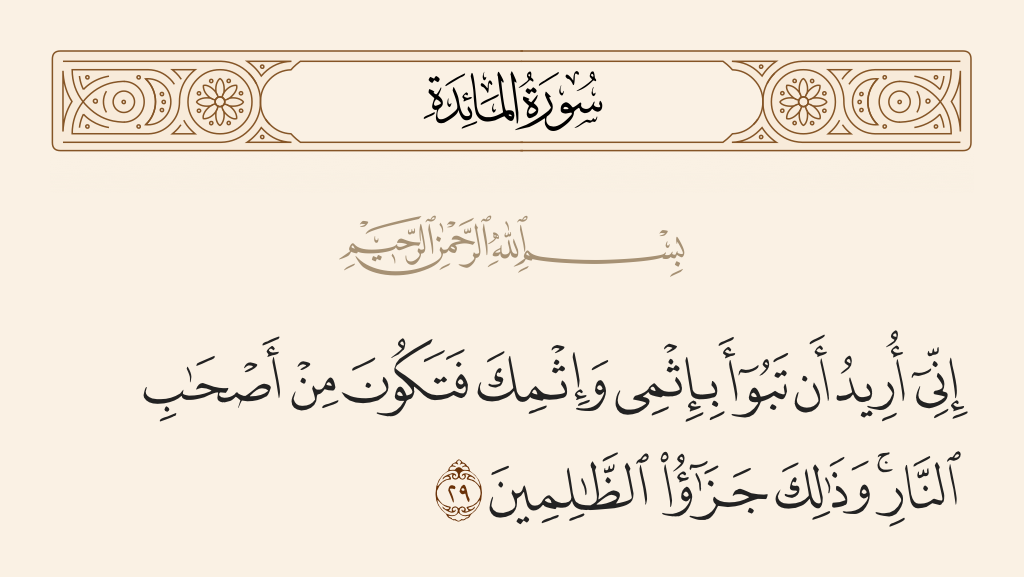 سُورَةُ المَائِدَةِ
بِسْمِ ٱللَّهِ ٱلرَّحْمَٰنِ ٱلرَّحِيمِ
إِنِّىٓ أُرِيدُ أَن تَبُوٓأَ بِإِثْمِى وَإِثْمِكَ فَتَكُونَ مِنْ أَصْحَـٰبِ
ٱلنَّارِ ۚ وَذَٰلِكَ جَزَٰٓؤُا۟ ٱلظَّـٰلِمِينَ ٢٩